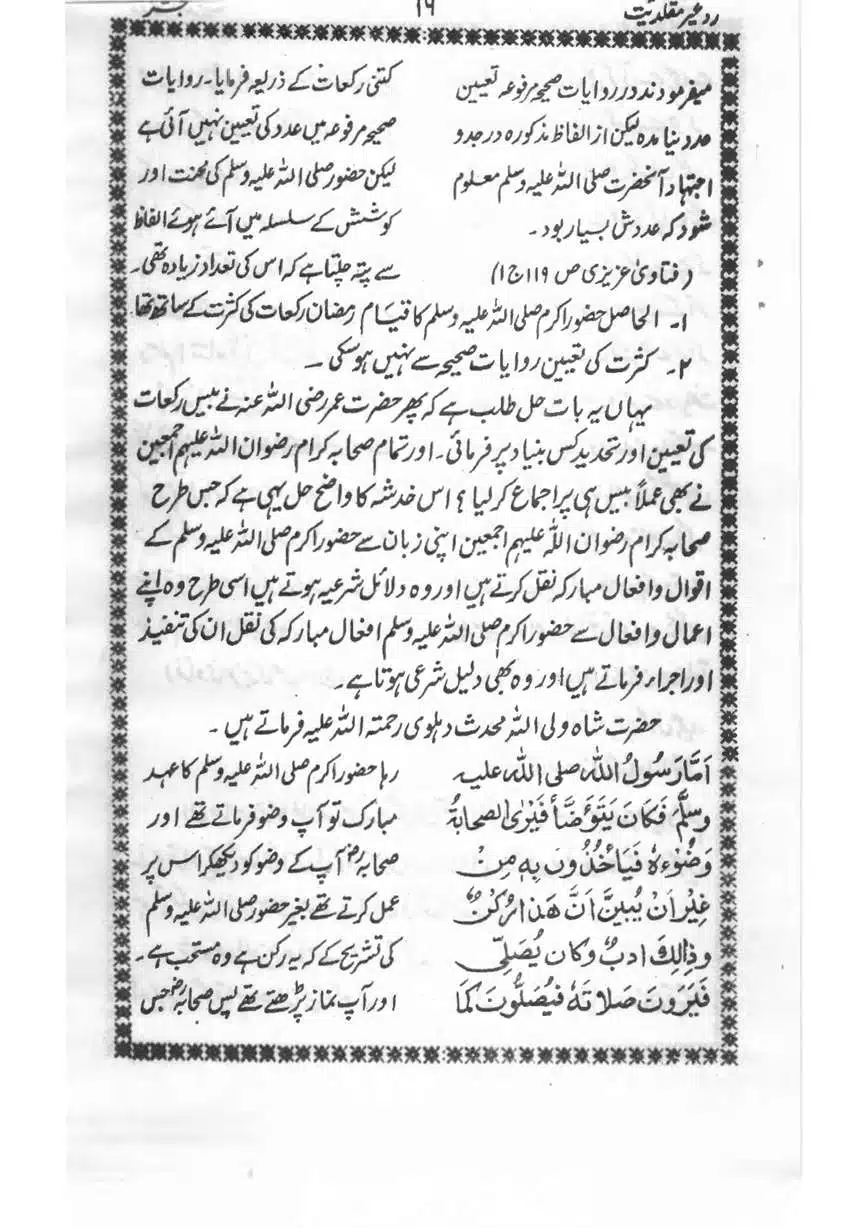 رد غیر مقلدیت
۱۶
میفرمودند در روایات صحیحہ مرفوعہ تعیین
عدد نیامدہ لیکن از الفاظ مذکورہ در جد و
اجتہاد آنحضرت صلی اللہ علیہ وسلم معلوم
شود کہ عددش بسیار بود۔
(فتاویٰ عزیزی ص ۱۱۹ ج ۱)
کتنی رکعات کے ذریعہ فرمایا۔ روایات
صحیحہ مرفوعہ میں عدد کی تعیین نہیں آئی ہے
لیکن حضور صلی اللہ علیہ وسلم کی محنت اور
کوشش کے سلسلہ میں آئے ہوئے الفاظ
سے پتہ چلتا ہے کہ اس کی تعداد زیادہ تھی۔
۱۔ الحاصل حضور اکرم صلی اللہ علیہ وسلم کا قیام رمضان رکعات کی کثرت کے ساتھ تھا
۲۔ کثرت کی تعیین روایات صحیحہ سے نہیں ہو سکی۔
یہاں یہ بات حل طلب ہے کہ پھر حضرت عمر رضی اللہ عنہ نے بیس رکعات
کی تعیین اور تحدید کس بنیاد پر فرمائی۔ اور تمام صحابہ کرام رضوان اللہ علیہم اجمعین
نے بھی عملاً بیس ہی پر اجماع کر لیا؟ اس خدشہ کا واضح حل یہی ہے کہ جس طرح
صحابہ کرام رضوان اللہ علیہم اجمعین اپنی زبان سے حضور اکرم صلی اللہ علیہ وسلم کے
اقوال و افعال مبارکہ نقل کرتے ہیں اور وہ دلائل شرعیہ ہوتے ہیں اسی طرح وہ اپنے
اعمال و افعال سے حضور اکرم صلی اللہ علیہ وسلم افعال مبارکہ کی نقل ان کی تنفیذ
اور اجراء فرماتے ہیں اور وہ بھی دلیل شرعی ہوتا ہے۔
حضرت شاہ ولی اللہ محدث دہلوی رحمتہ اللہ علیہ فرماتے ہیں۔
اَمَّا رَسُولُ اللہ صلی اللہ علیہ
وسلَّم فَکَانَ یَتَوَضَّأ فَیَرٰی الصحابۃُ
وَضُوْءَہٗ فَیَاْخُذُوْنَ بِہٖ مِنْ
غَیْرِ اَنْ یُبَیِّنَ اَنَّ ھَذَا رُکْنٌ
وذَالِکَ ادبٌ وکان یُصَلِّی
فَیَرَوْنَ صَلَاتَہٗ فیُصَلُّوْنَ کَمَا
رہا حضور اکرم صلی اللہ علیہ وسلم کا عہد
مبارک تو آپ وضو فرماتے تھے اور
صحابہؓ آپ کے وضو کو دیکھکر اس پر
عمل کرتے تھے بغیر حضور صلی اللہ علیہ وسلم
کی تشریح کے کہ یہ رکن ہے وہ مستحب ہے۔
اور آپ نماز پڑھتے تھے پس صحابہؓ جس